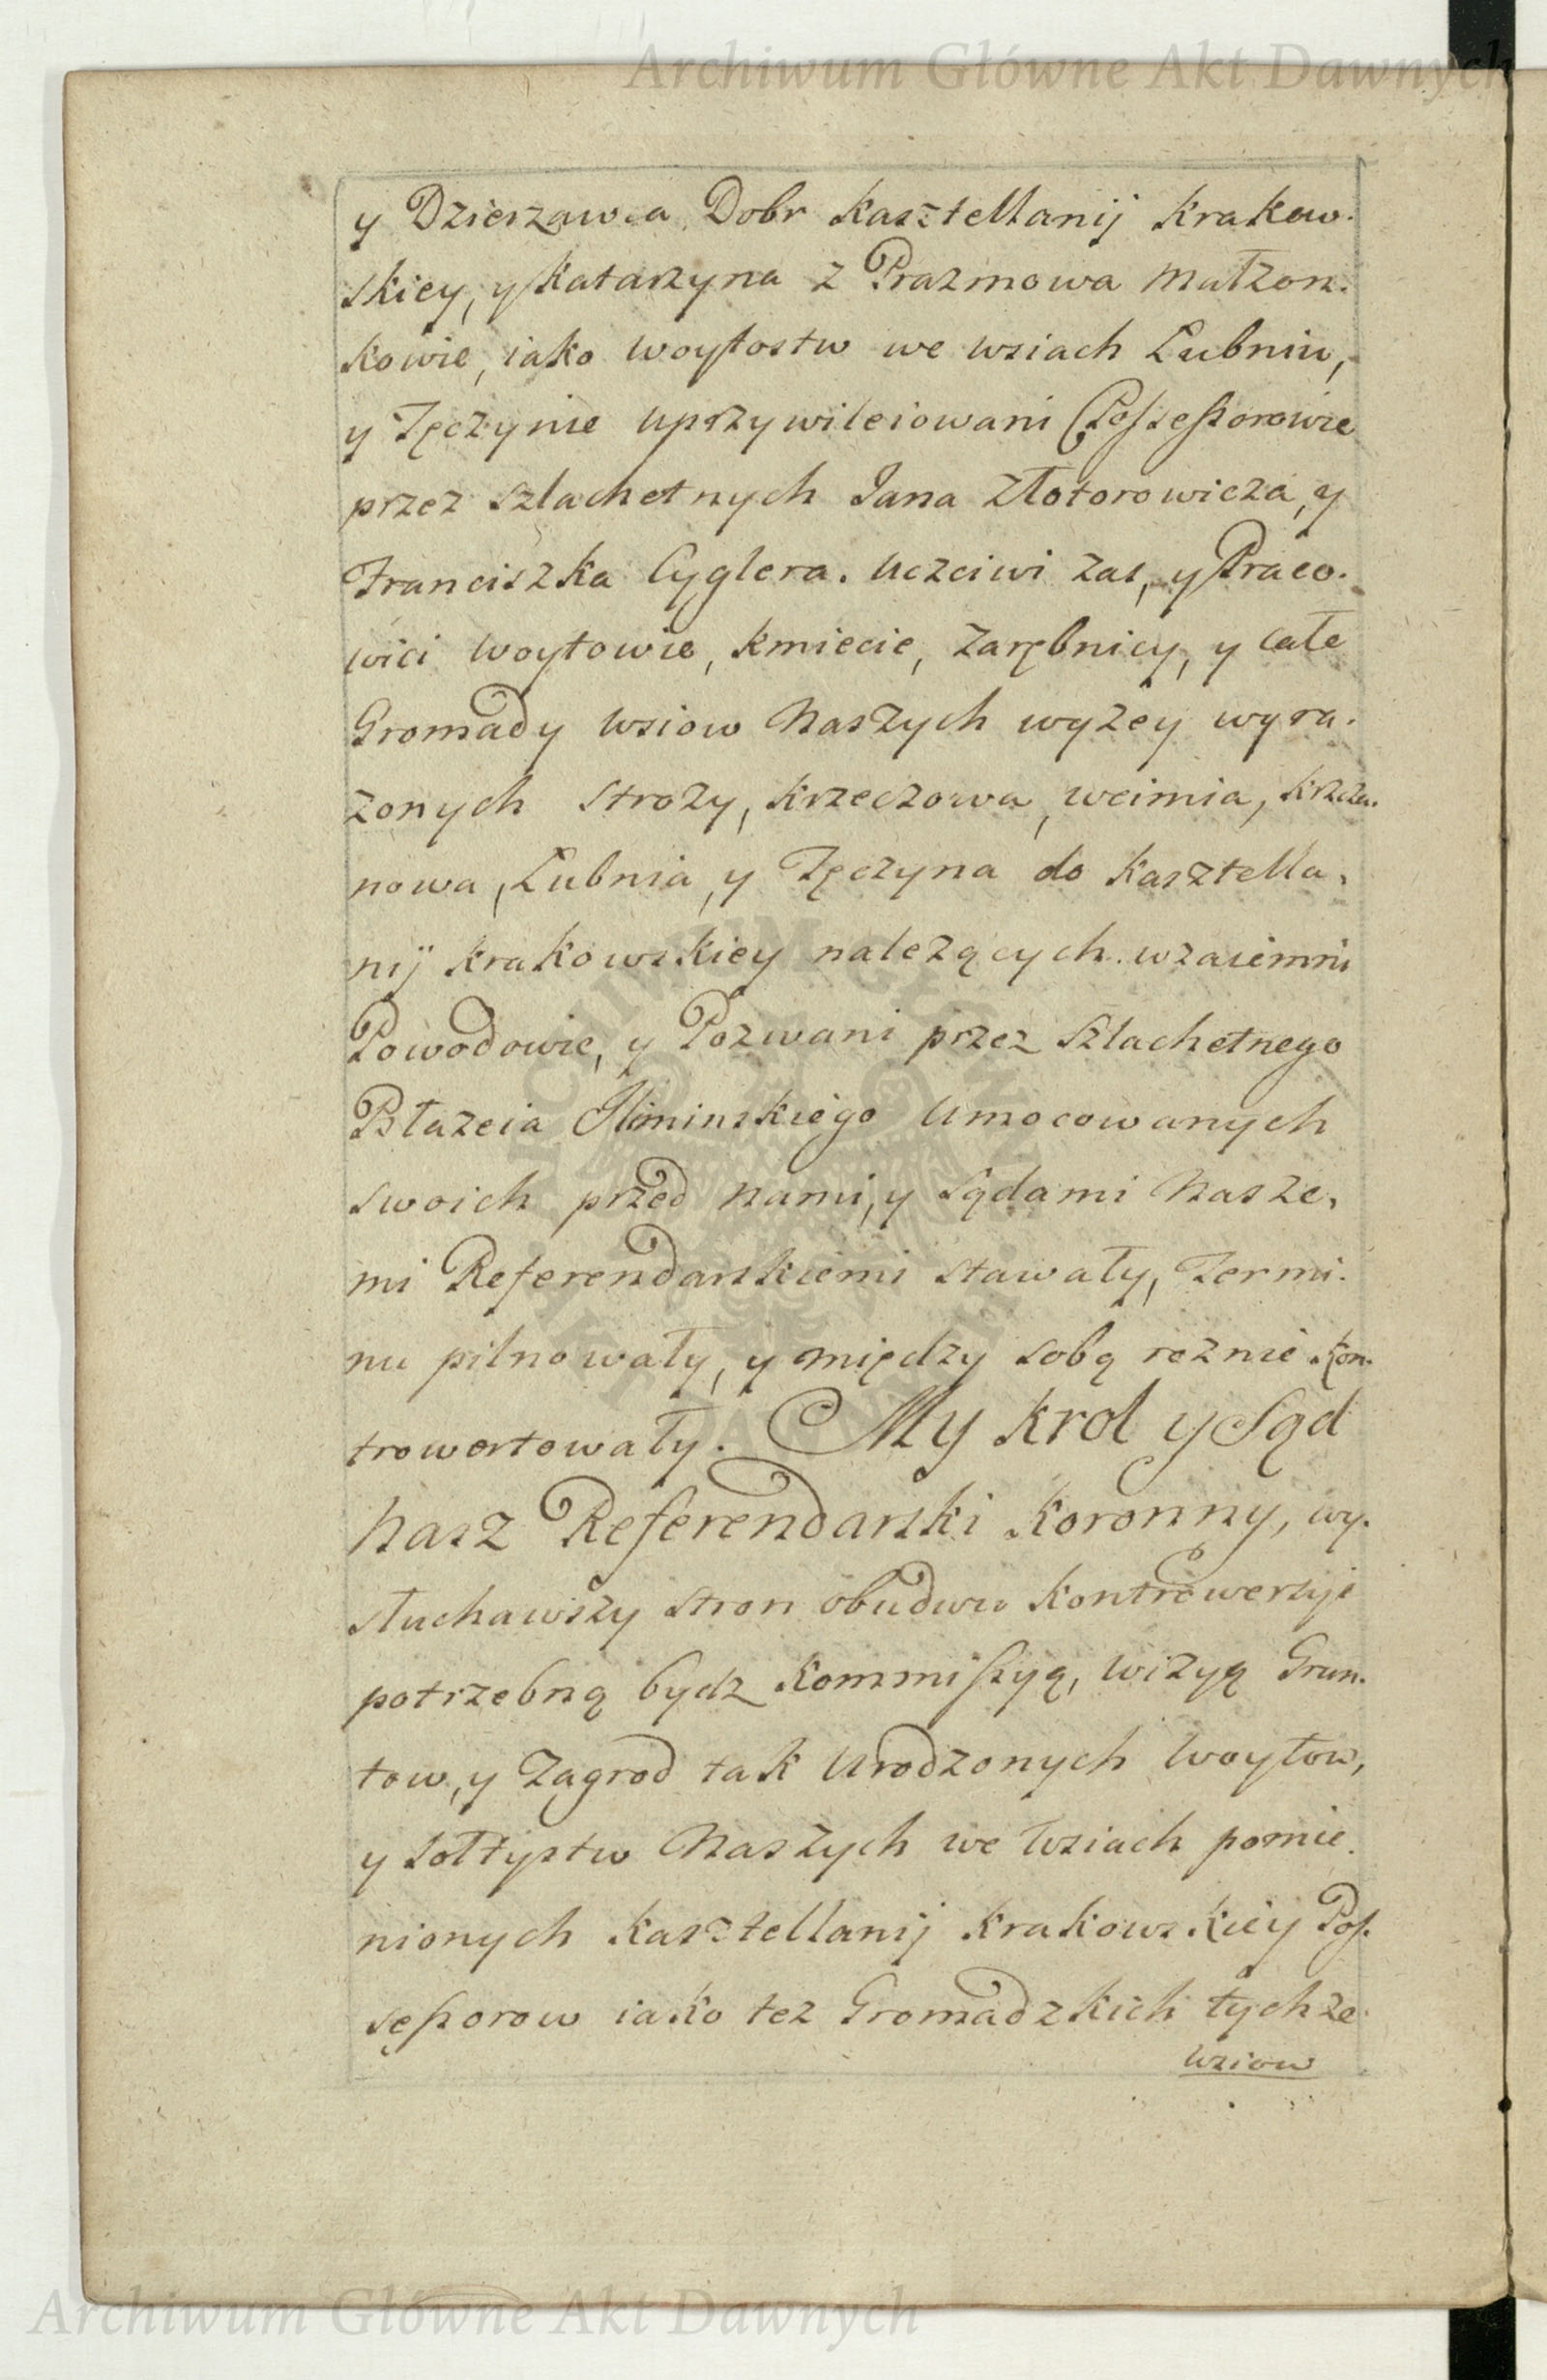 Archiwum Główne Akt Dawnych
y Dzierzawca Dobr Kasztellanij Krakow.
skiey, y Katarzyna z Prazmowa Małzon.
kowie, iako woytostw we wsiach Lubniu,
y Tęczynie uprzywileiowani Possessorowie
przez szlachetnych Jana Złotorowicza, y
Franciszka Cyglera. Uczciwi zas, y Praco.
wici Woytowie, Kmiecie, Zarębnicy, y całe
Gromady wsiow Naszych wyzey wyra.
zonych Strozy, Krzeczowa, wcimia, Krzcza.
nowa, Lubnia, y Tęczyna do Kasztella,
nij Krakowskiey nalezących. wzaiemni
Powodowie, y Pozwani przez Szlachetnego
Błazeia Umocowanych
swoich przed Nami, y Sądami Nasze,
mi Referendarskiemi stawały, Termi.
nu pilnowały, y między sobą roznie kon.
trowertowały. My Krol y Sąd
Nasz Referendarski Koronny, wy.
słuchawszy stron obudwu kontrowersyi
potrzebną bydz Kommissyą, wizyą Grun.
tow, y Zagrod tak Urodzonych Woytow,
y Sołtystw Naszych we wsiach pomie.
nionych Kasztellanij Krakowskiey Pos.
sessorow iako tez Gromadzkich tychze
wsiow
Archiwum Główne Akt Dawnych